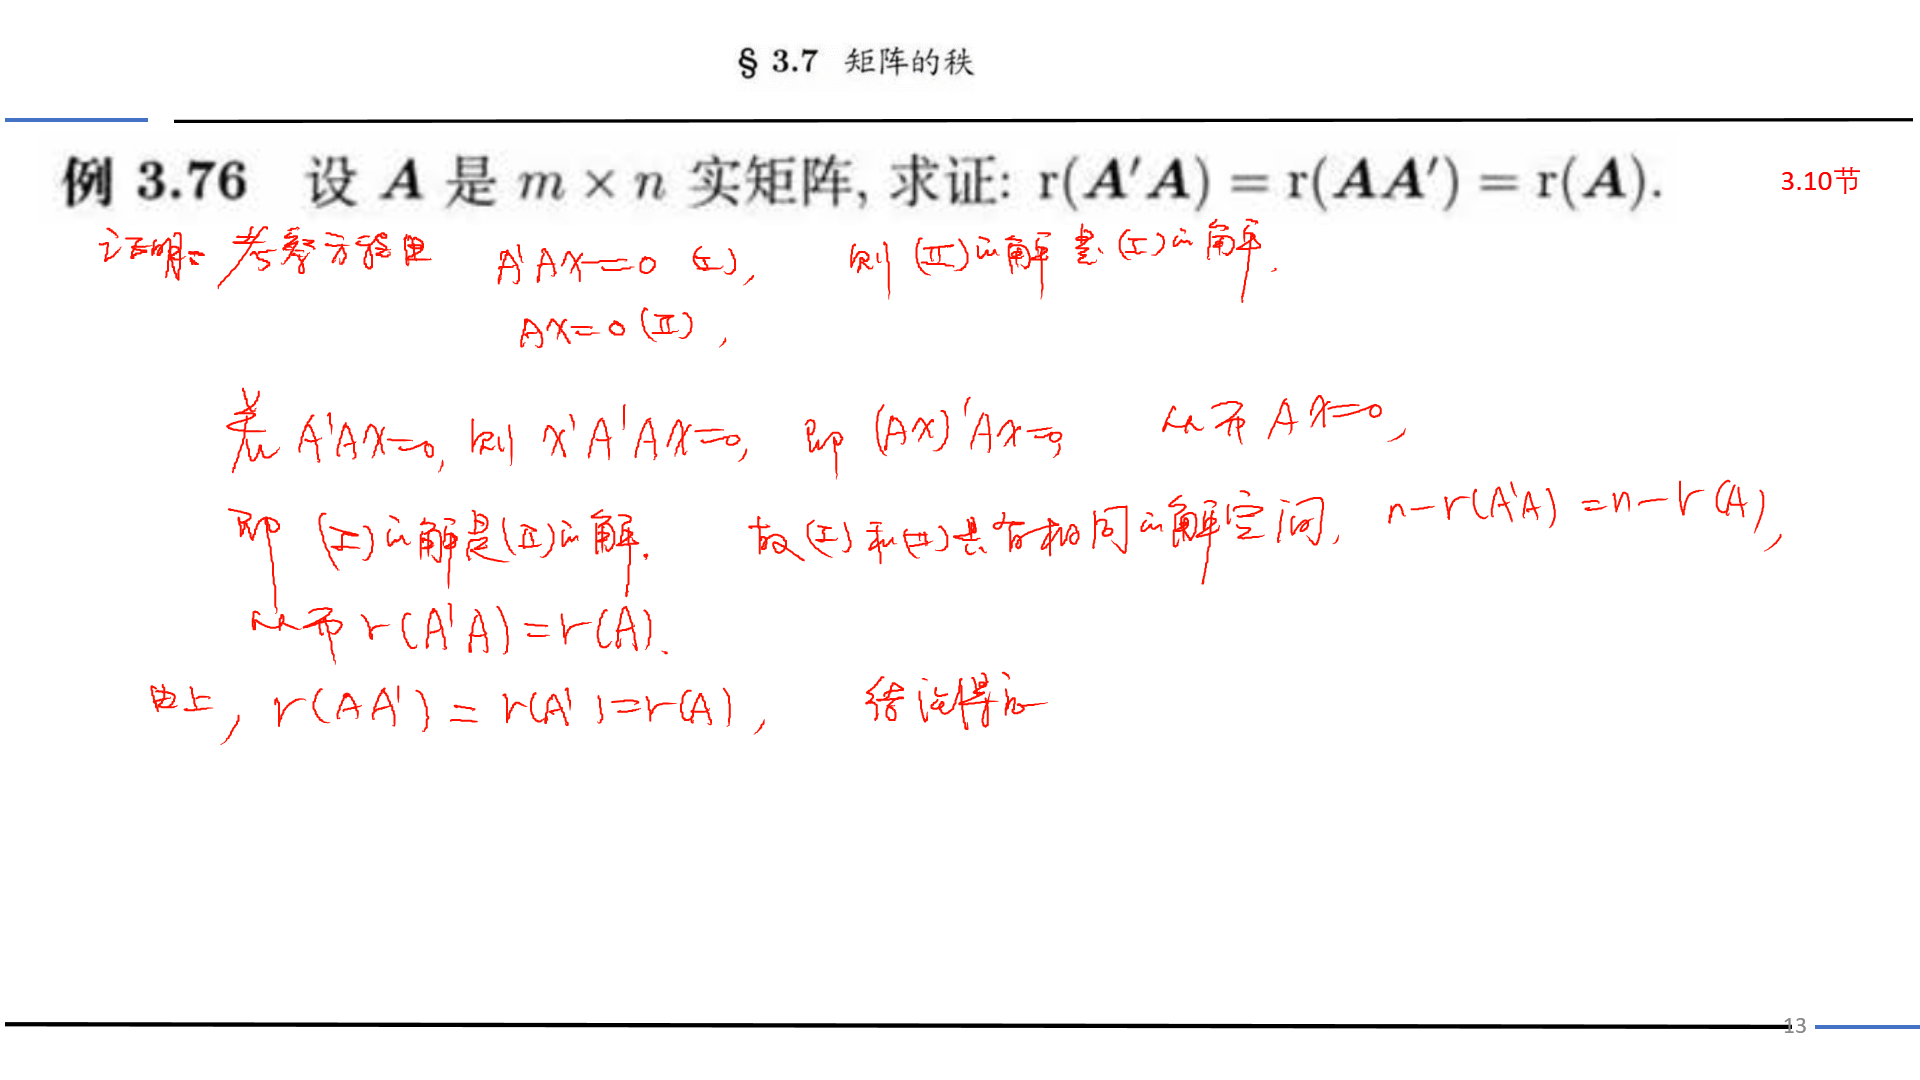 § 3.7 矩阵的秩
例 3.76 设 A 是 m × n 实矩阵, 求证: r(A′A) = r(AA′) = r(A).
3.10节
证明: 考察方程组 A'Ax=0 (I), 则 (II) 的解是 (I) 的解.
Ax=0 (II),
若 A'Ax=0, 则 x'A'Ax=0, 即 (Ax)'Ax=0, 从而 Ax=0,
即 (I) 的解是 (II) 的解. 故 (I) 和 (II) 具有相同的解空间, n-r(A'A) = n-r(A),
从而 r(A'A) = r(A).
由上, r(AA') = r(A') = r(A), 结论得证
13